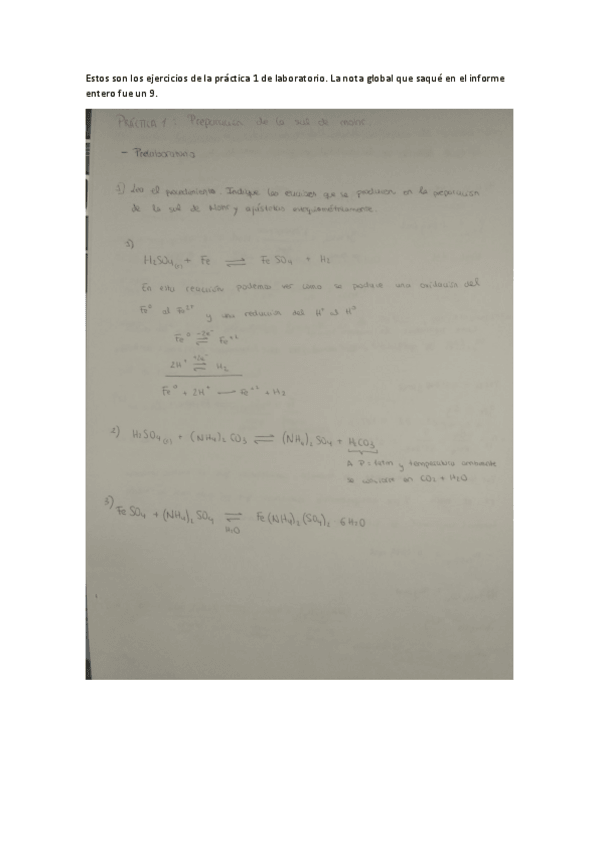 Estos son los ejercicios de la práctica 1 de laboratorio. La nota global que saqué en el informe
entero fue un 9.
PRÁCTICA 1: Preparación de la sal de mohr.
- Prelaboratorio
el procedimiento. Indique las que se producen en la preparación
de la sal de Mohr y ajústelas estequiométricamente.
1)
H2SO4(c) + Fe ⇌ FeSO4 + H2
En esta reacción podemos ver como se produce una oxidación del
Fe⁰ al Fe²⁺ y una reducción del H⁺ al H⁰
Fe⁰ -2e⁻ ⇌ Fe⁺²
2H⁺ ⇌ H2
Fe⁰ + 2H⁺ — Fe⁺² + H2
2) H2SO4(c) + (NH4)2CO3 ⇌ (NH4)2SO4 + H2CO3
a P = 1atm y temperatura ambiente
se en CO2 + H2O
3)
FeSO4 + (NH4)2SO4 ⇌ Fe(NH4)2(SO4)2 · 6H2O
H2O